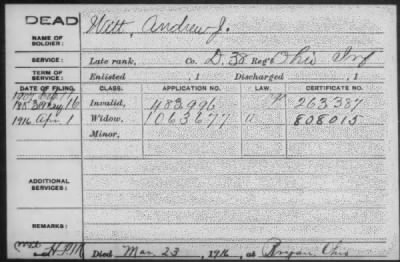 DEAD
NAME OF SOLDIER: Witt, Andrew J.
SERVICE: Late rank, Co. D, 38 Reg't Ohio Inf
TERM OF SERVICE: Enlisted , 1 Discharged , 1
DATE OF FILING. CLASS. APPLICATION NO. LAW. CERTIFICATE NO.
May 16 Invalid, 483,996 263387
1916 Apr 1 Widow, 1063677 808015
Minor,
ADDITIONAL SERVICES:
REMARKS:
Died Mar. 23, 1916, at Bryan Ohio